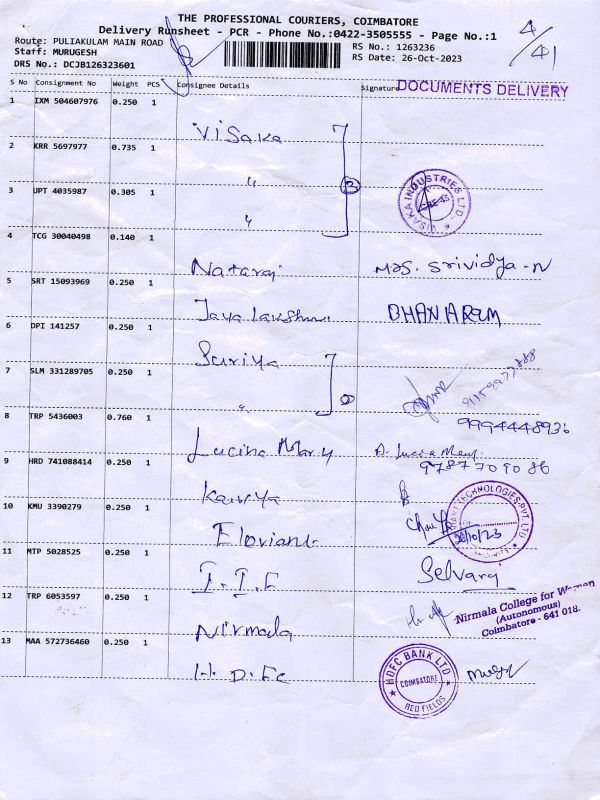 THE PROFESSIONAL COURIERS, COIMBATORE
Delivery Runsheet - PCR - Phone No.:0422-3505555 - Page No.:1
4/41
Route: PULIAKULAM MAIN ROAD
Staff: MURUGESH
DRS No.: DCJB126323601
RS No.: 1263236
RS Date: 26-Oct-2023
S No Consignment No Weight PCS Consignee Details Signature
DOCUMENTS DELIVERY
1 IXM 504607976 0.250 1
Visaka
2 KRR 5697977 0.735 1
"
3
VISAKA INDUSTRIES LTD.
3 UPT 4035987 0.305 1
"
4 TCG 30040498 0.140 1
Nataraj Mrs. Srividya-N
5 SRT 15093969 0.250 1
Jaya Lakshmi
6 DPI 141257 0.250 1
Suriya
7 SLM 331289705 0.250 1
"
8 TRP 5436003 0.760 1
9994448936
Lucina Mary A. Lucia Mary
9787709086
9 HRD 741088414 0.250 1
Kavya
10 KMU 3390279 0.250 1
TECHNOLOGIES PVT. LTD
26/10/23
11 MTP 5028525 0.250 1
Selvaraj
12 TRP 6053597 0.250 1
Nirmala College for Women
(Autonomous)
Coimbatore - 641 018.
Nirmala
13 MAA 572736460 0.250 1
H.D.F.C
HDFC BANK LTD
COIMBATORE
RED FIELDS